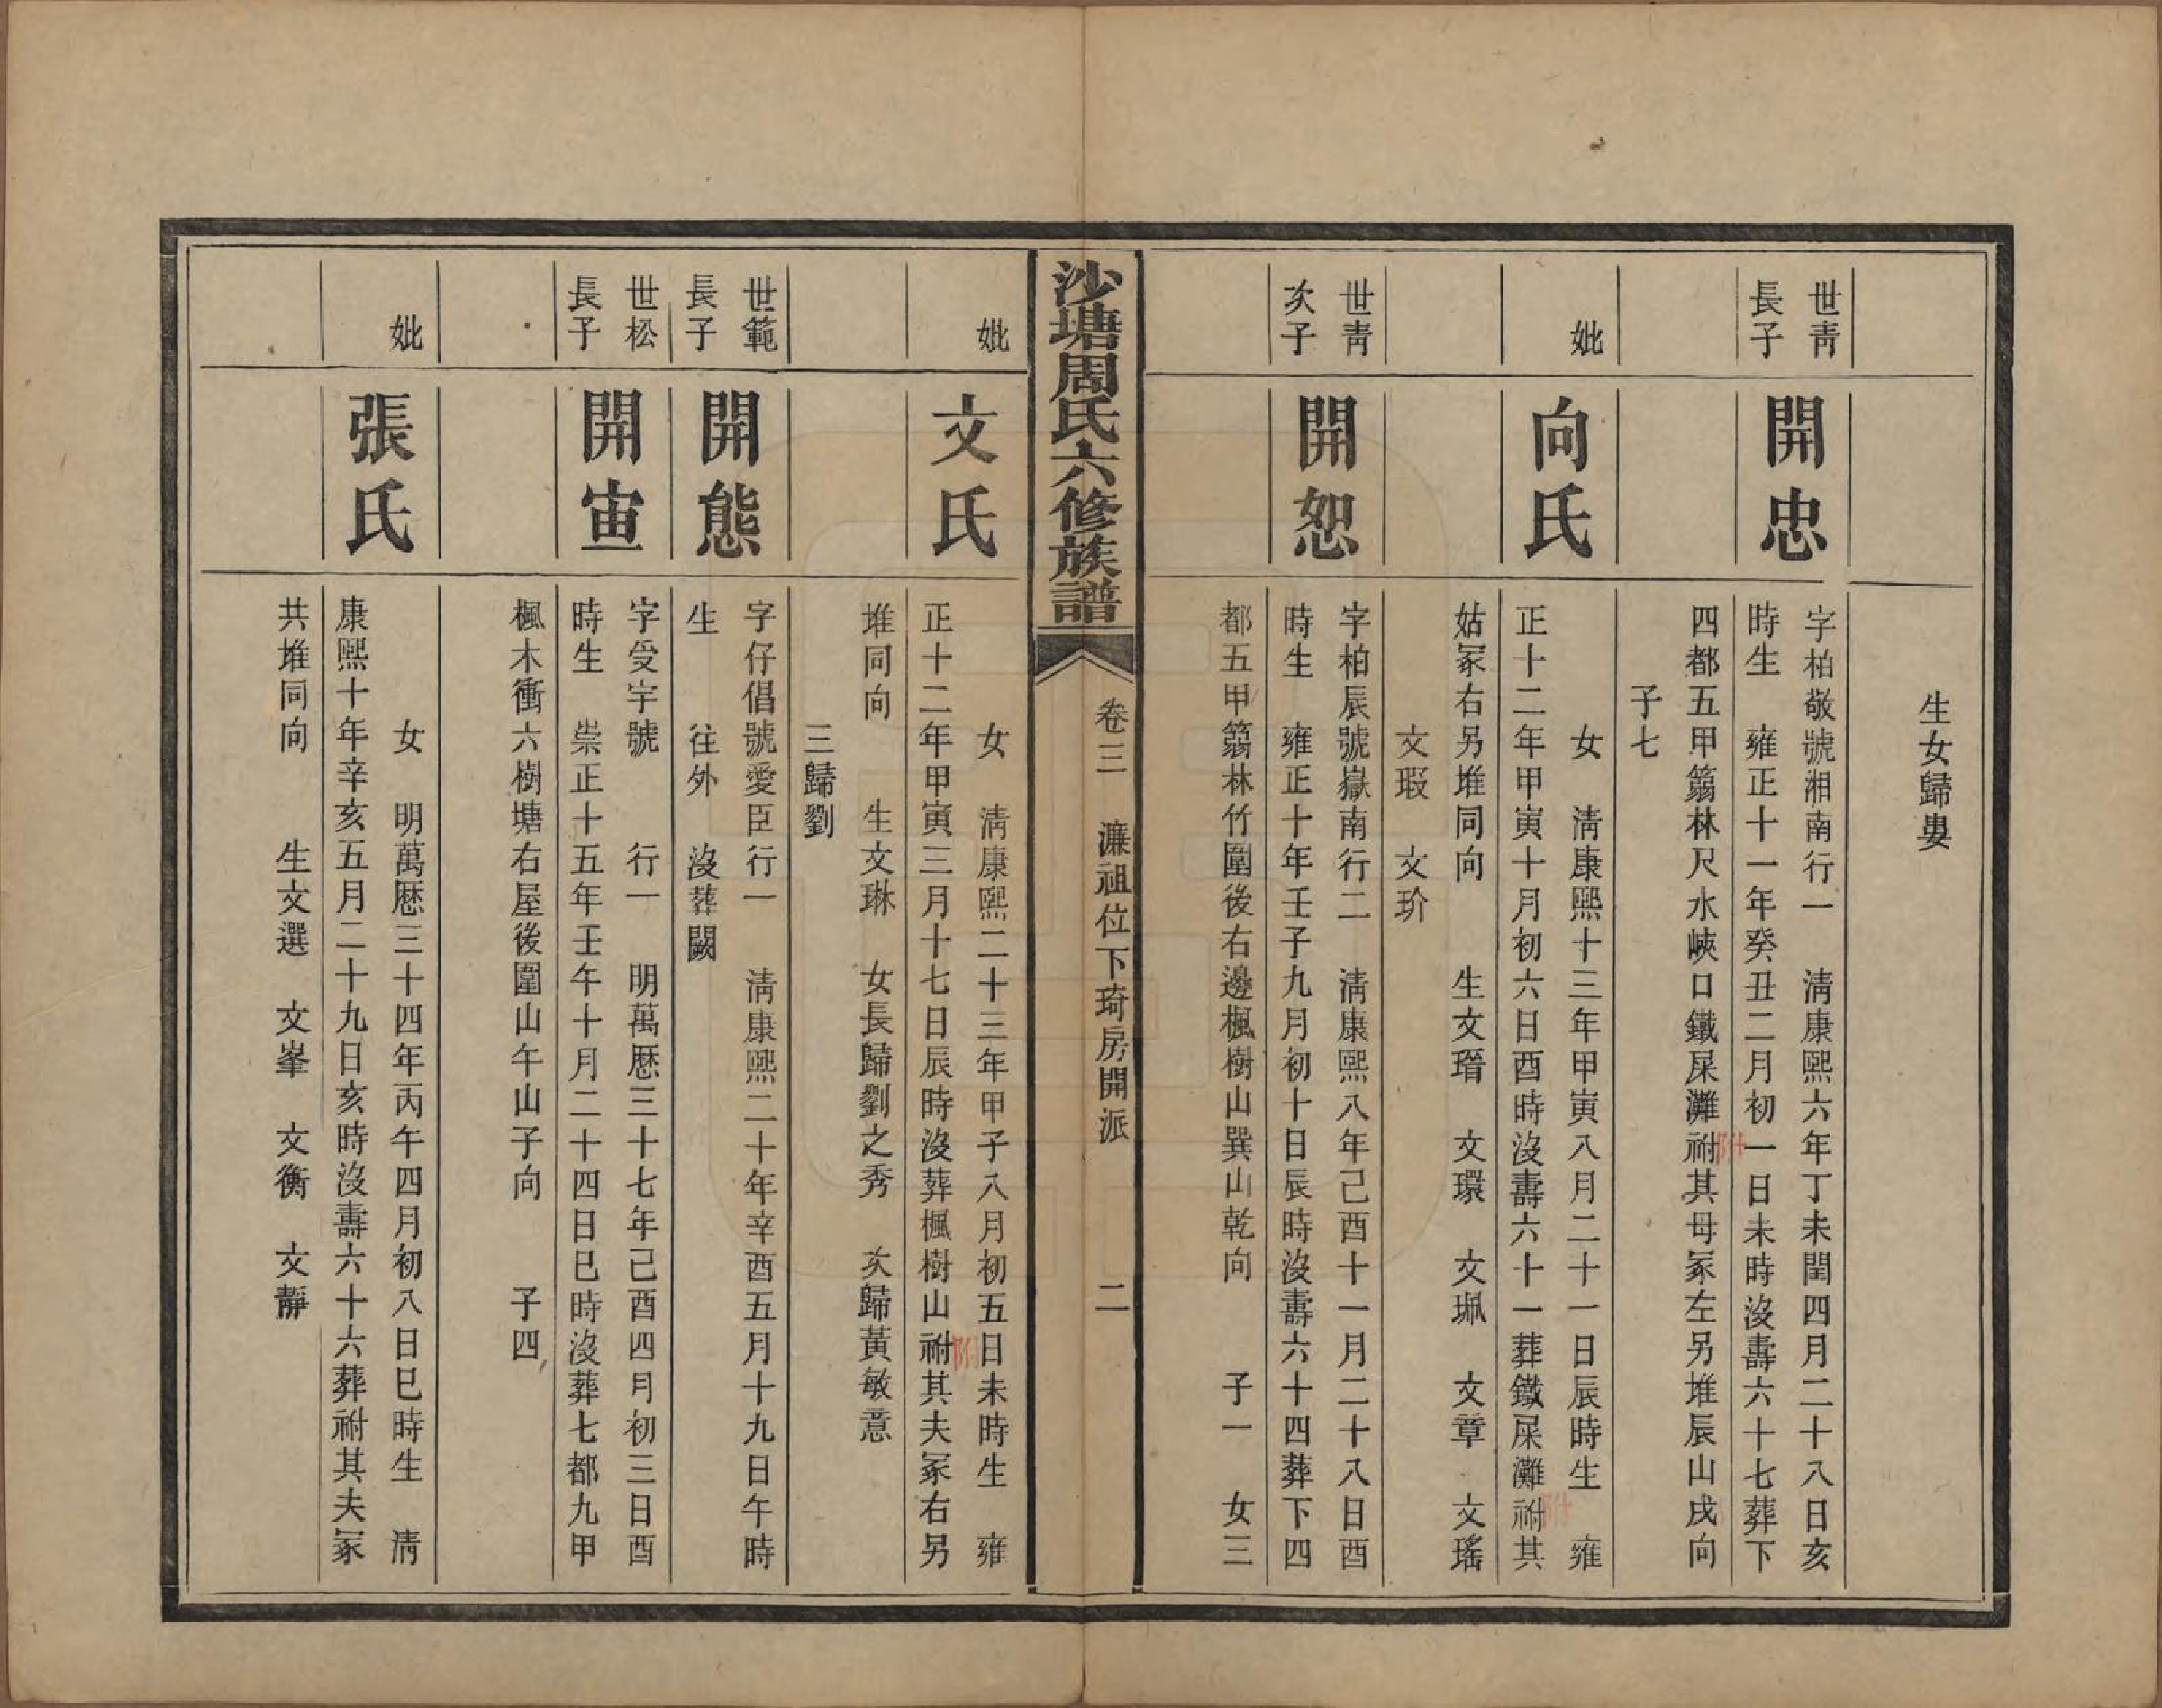 生女歸婁
世靑
長子
開忠
字柏敬號湘南行一 淸康熙六年丁未閏四月二十八日亥
時生 雍正十一年癸丑二月初一日未時沒壽六十七葬下
四都五甲篛林尺水峽口鐵屎灘祔其母冢左另堆辰山戌向
附
子七
妣
向氏
女 淸康熙十三年甲寅八月二十一日辰時生 雍
正十二年甲寅十月初六日酉時沒壽六十一葬鐵屎灘祔其
附
姑冢右另堆同向 生文瑨 文環 文珮 文章 文瑤
文瑕 文玠
世靑
次子
開恕
字柏辰號嶽南行二 淸康熙八年己酉十一月二十八日酉
時生 雍正十年壬子九月初十日辰時沒壽六十四葬下四
都五甲篛林竹圍後右邊楓樹山巽山乾向 子一 女三
沙塘周氏六修族譜
卷三 濂祖位下琦房開派 二
妣
文氏
女 淸康熙二十三年甲子八月初五日未時生 雍
正十二年甲寅三月十七日辰時沒葬楓樹山祔其夫冢右另
附
堆同向 生文琳 女長歸劉之秀 次歸黃敏意
三歸劉
世範
長子
開態
字仔倡號愛臣行一 淸康熙二十年辛酉五月十九日午時
生 往外 沒葬闕
世松
長子
開宙
字受宇號 行一 明萬曆三十七年己酉四月初三日酉
時生 崇正十五年壬午十月二十四日巳時沒葬七都九甲
楓木衝六樹塘右屋後圍山午山子向 子四
妣
張氏
女 明萬曆三十四年丙午四月初八日巳時生 淸
康熙十年辛亥五月二十九日亥時沒壽六十六葬祔其夫冢
共堆同向 生文選 文峯 文衡 文靜